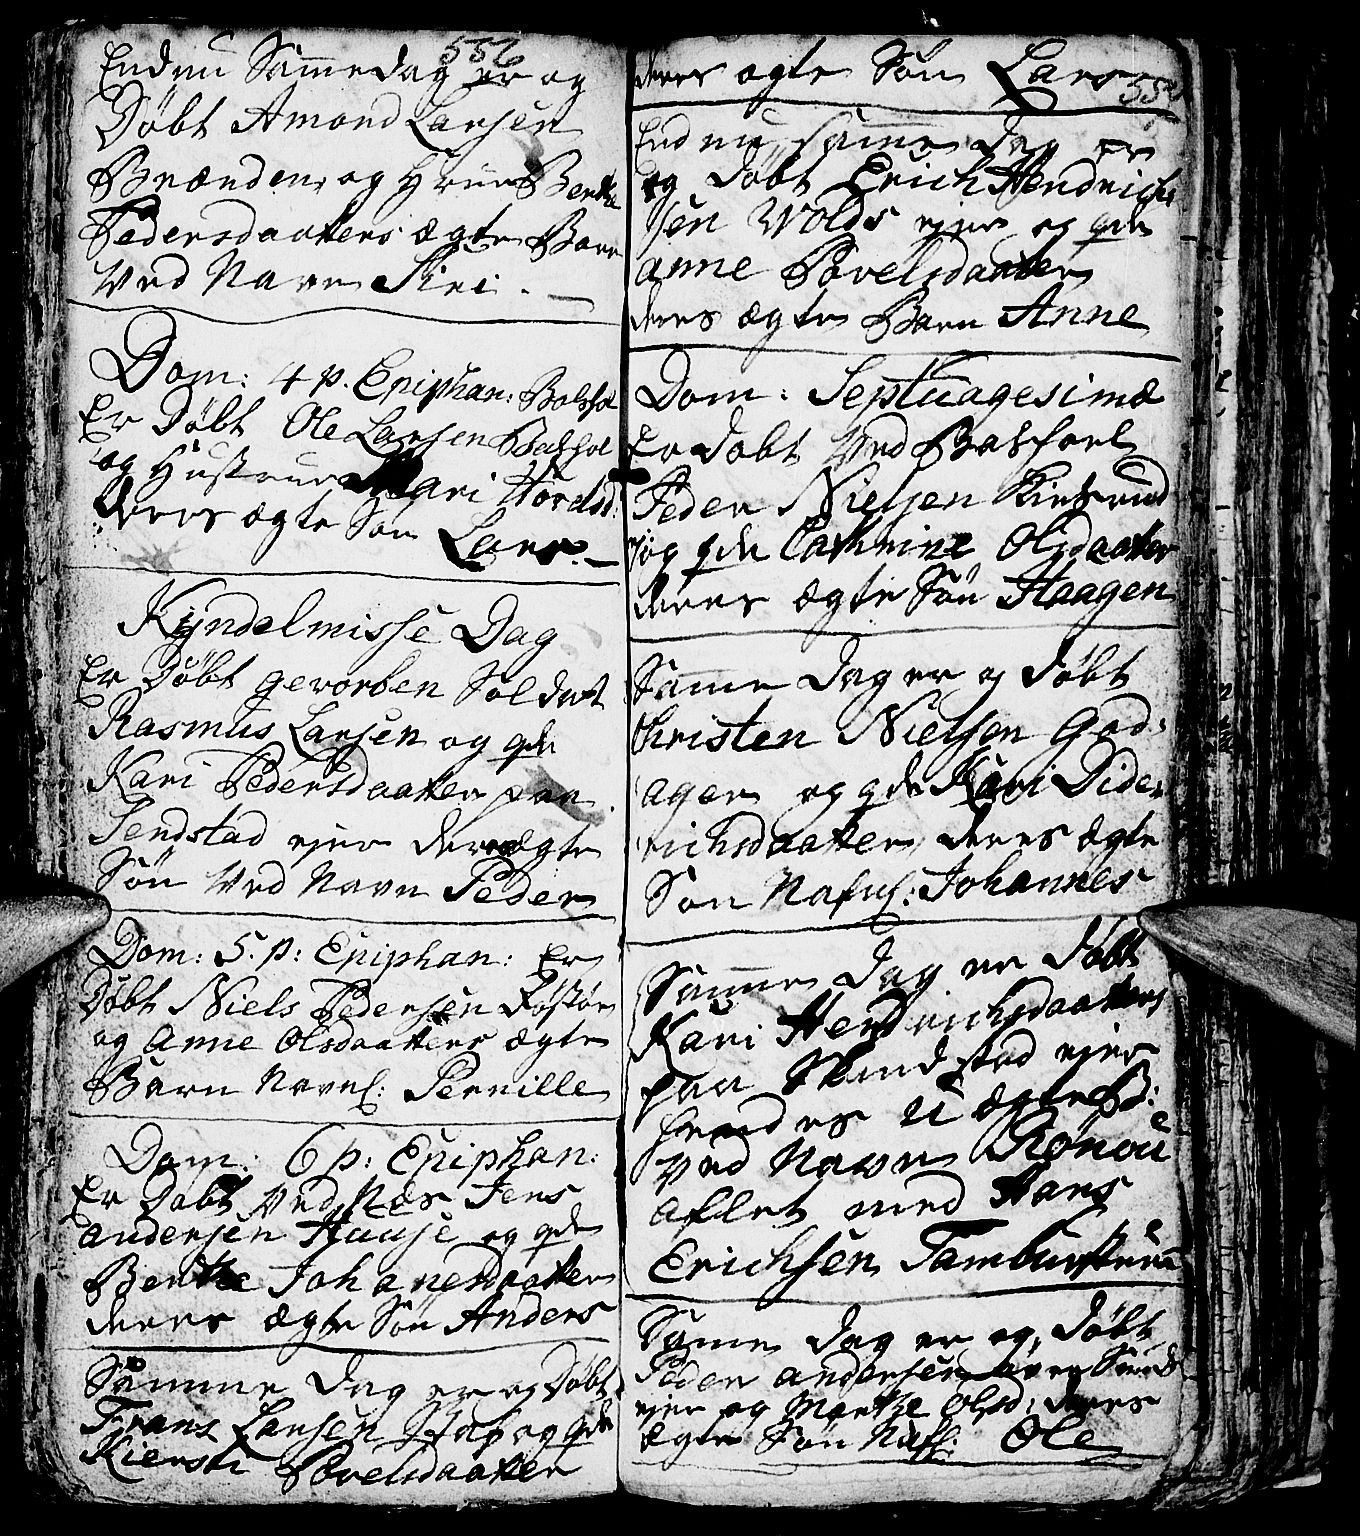 556
Endnu Samme dag er og
Døbt Amond Larsen
Brænden, og Hrue Berthe
Pedersdaatters ægte Barn
Ved Navn Siri.
Dom: 4 p. Epiphan:
Er Døbt Ole Larsen
og Hustrue Kari
deres ægte Søn Lars.
Kyndelmisse Dag
Er Døbt gevorben Soldat
Rasmus Larsen og qde
Kari Pedersdaatter paa
Sendstad ejer deres ægte
Søn Ved Navn Peder
Dom: 5. p: Epiphan: Er
Døbt Niels Pedersen
og Anne Olsdaatters ægte
Barn Navnl: Pernille
Dom: 6 p: Epiphan:
Er Døbt Ved Næs Jens
Andersen Hauje og qde
Berthe Johanesdaatter
deres ægte Søn Anders
Samme dag er og Døbt
Frans Larsen og qde
Kiersti Povelsdaatter
deres ægte Søn Lars
Endnu samme dag er
og døbt Erich Hendrich
sen Wolds ejer og qde
Anne Povelsdaatter
deres ægte Barn Anne
Dom: Septuagesimæ
Er døbt Ved
Peder Nielsen
og qde Cathrine Olsdaatter
deres ægte Søn Haagen
Samme dag er og døbt
Christen Nielsen God-
ager og qde Kari Dide
richsdaatter deres ægte
Søn Nafnl: Johannes
Samme dag er døbt
Kari Hendrichsdaatters
paa ejer
hendes U ægte B:
Ved Navn Rønou
aflet med Hans
Erichsen
Samme dag er og døbt
Peder Andersen
ejer og Marthe Olsd: deres
ægte Søn Nafl: Ole